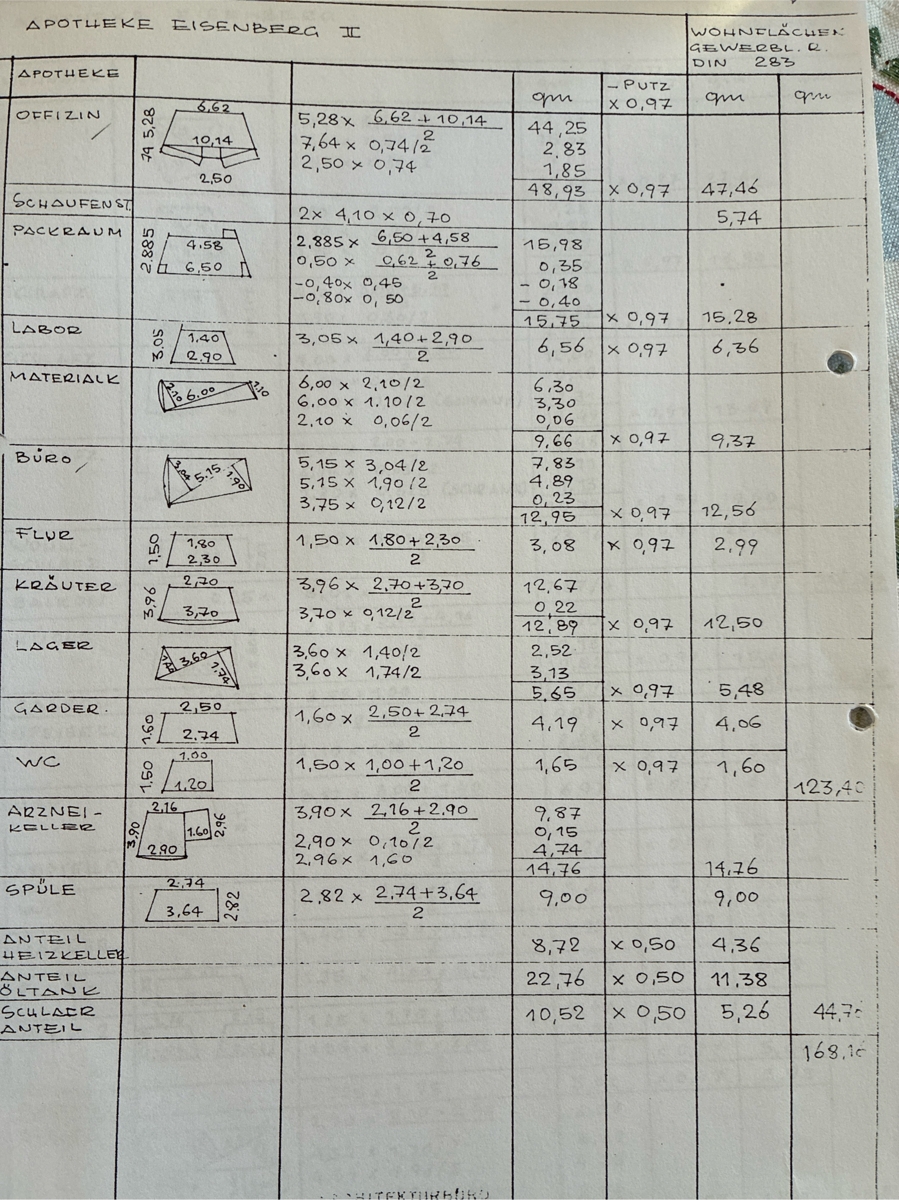 APOTHEKE EISENBERG II
WOHNFLÄCHEN
GEWERBL. R.
DIN 283
APOTHEKE
qm
- PUTZ
× 0,97
qm
qm
OFFIZIN
6,62
5,28
74
10,14
2,50
5,28 × 6,62 + 10,14 / 2
44,25
7,64 × 0,74/2
2,83
2,50 × 0,74
1,85
48,93 × 0,97 47,46
SCHAUFENST.
2× 4,10 × 0,70
5,74
PACKRAUM
2.885
4,58
6,50
2,885 × 6,50 + 4,58 / 2
15,98
0,50 × 0,62 + 0,76 / 2
0,35
-0,40× 0,45
- 0,18
-0,80× 0,50
- 0,40
15,75 × 0,97 15,28
LABOR
3.05
1,40
2,90
3,05 × 1,40 + 2,90 / 2
6,56 × 0,97 6,36
MATERIALK
2.10
6.00
1.10
6,00 × 2,10/2
6,30
6,00 × 1.10/2
3,30
2,10 × 0,06/2
0,06
9,66 × 0,97 9,37
BÜRO
3,04
5,15
1,90
5,15 × 3,04/2
7,83
5,15 × 1,90/2
4,89
3,75 × 0,12/2
0,23
12,95 × 0,97 12,56
FLUR
1,50
1,80
2,30
1,50 × 1,80 + 2,30 / 2
3,08 × 0,97 2,99
KRÄUTER
2,70
3,96
3,70
3,96 × 2,70 + 3,70 / 2
12,67
3,70 × 0,12/2
0,22
12,89 × 0,97 12,50
LAGER
1,40
3,60
1,74
3,60 × 1,40/2
2,52
3,60 × 1,74/2
3,13
5,65 × 0,97 5,48
GARDER.
2,50
1.60
2.74
1,60 × 2,50 + 2,74 / 2
4,19 × 0,97 4,06
WC
1,00
1,50
1,20
1,50 × 1,00 + 1,20 / 2
1,65 × 0,97 1,60
123,40
ARZNEI-
KELLER
2,16
3,90
2,90
1.60
2,96
3,90 × 2,16 + 2,90 / 2
9,87
2,90 × 0,10/2
0,15
2,96 × 1,60
4,74
14,76 14,76
SPÜLE
2,74
3,64
2,82
2,82 × 2,74 + 3,64 / 2
9,00 9,00
ANTEIL
HEIZKELLER
8,72 × 0,50 4,36
ANTEIL
ÖLTANK
22,76 × 0,50 11,38
SCHLAER
ANTEIL
10,52 × 0,50 5,26 44,76
168,16